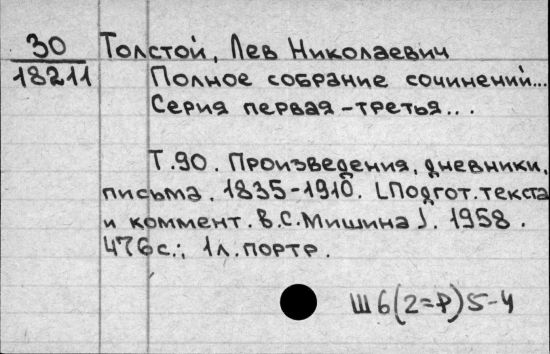 30
18211
Толстой, Лев Николаевич
Полное собрание сочинений...
Серия первая-третья...
Т.90. Произведения, дневники,
письма. 1835-1910. [Подгот. текста
и коммент. В.С. Мишина]. 1958.
476с.; 1л. портр.
Ш6(2=Р)5-4